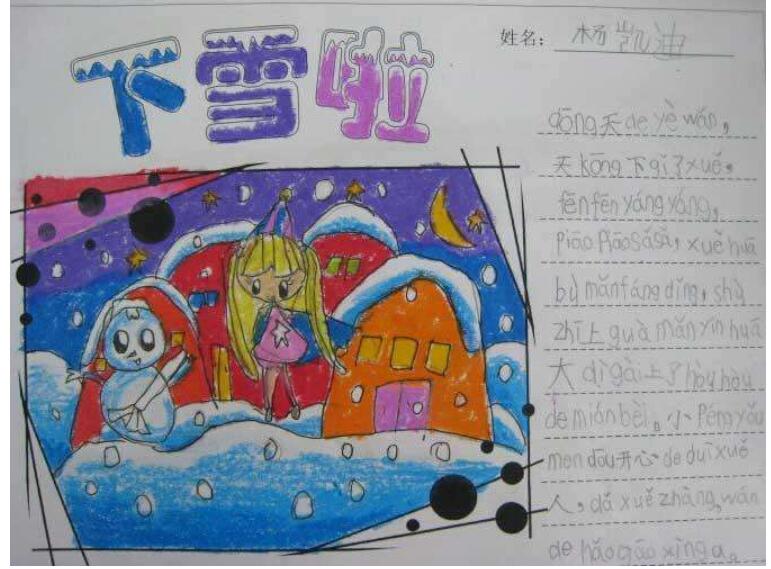 下雪啦
姓名：杨凯迪
dōng天de yè wǎn，
天kōng下qǐ了xuě，
fēn fēn yáng yáng，
Piāo Piāo sǎ sǎ，xuě huā
bù mǎn fáng dǐng，shù
zhī上guà mǎn yín huā
大dì gài上了hòu hòu
de mián bèi。小Péng yǒu
men dōu开心de duī xuě
人，dǎ xuě zhàng，wán
de hǎo gāo xìng a。